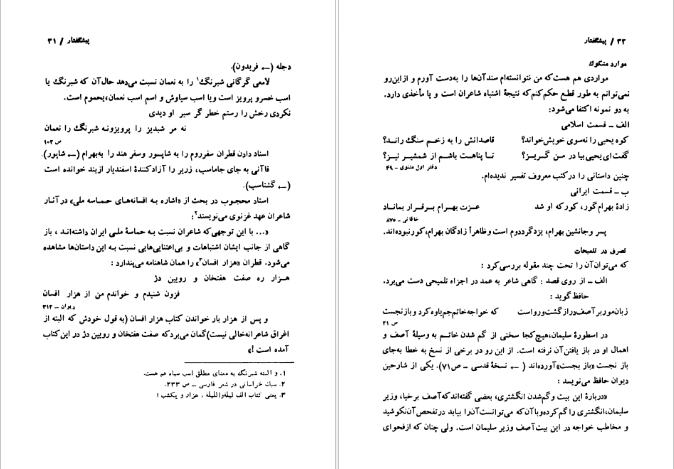 پیشگفتار / ۳۱
دجله (← فریدون).
لامعی گرگانی شبرنگ۱ را به نعمان نسبت می‌دهد حال‌آن که شبرنگ یا
اسب خسرو پرویز است ویا اسب سیاوش و اسم اسب نعمان، یحموم است.
نکردی رخش را رستم خطر گر سیر او دیدی
نه مر شبدیز را پرویزونه شبرنگ را نعمان
ص ۱۰۳
اسناد دادن قطران سفرروم را به شاپور وسفر هند را به‌بهرام (← شاپور).
قاآنی به جای جاماسب، زریر را آزادکنندهٔ اسفندیار ازبند خوانده است
(← گشتاسب).
استاد محجوب در بحث از «اشاره به افسانه‌های حماسه ملی» در آثار
شاعران عهد غزنوی می‌نویسند۲:
«... با این توجهی‌که شاعران نسبت به حماسهٔ ملی ایران داشته‌اند، باز
گاهی از جانب ایشان اشتباهات و بی‌اعتنایی‌هایی نسبت به این داستان‌ها مشاهده
می‌شود. قطران «هزار افسان۳» را همان شاهنامه می‌پندارد:
هـزار ره صفت هفتخان و رویین دژ
فزون شنیدم و خواندم من از هزار افسان
دیوان ـ ۳۱۳
و پس از هزار بار خواندن کتاب هزار افسان (به قول خودش که البته از
اغراق شاعرانه‌خالی نیست)گمان می‌بردکه صفت هفتخان و رویین دژ در این کتاب
آمده است!»
۱. و البته شبرنگ به معنای مطلق اسب سیاه هم هست.
۲. سبک خراسانی در شعر فارسی ـ ص ۲۳۳.
۳. یعنی کتاب الف لیلةواللیلة، هزار و یکشب!
۳۲ / پیشگفتار
موارد مشکوک
مواردی هم هست‌که من نتوانسته‌ام سندآن‌ها را به‌دست آورم و ازاین‌رو
نمی‌توانم به طور قطع حکم‌کنم‌که نتیجهٔ اشتباه شاعران است و یا مأخذی دارد.
به دو نمونه اکتفا می‌شود:
الف ـ قسمت اسلامی
کوه یحیی را نه‌سوی خویش‌خواند؟ قاصدانش را به زخـم سنگ رانـد؟
گفت‌ای یحیی بیا در من گـریـز؟ تـا پناهت باشـم از شمشیـر تیـز؟
دفتر اول مثنوی ـ ۴۹
چنین داستانی را درکتب معروف تفسیر ندیده‌ام.
ب ـ قسمت ایرانی
زادهٔ بهرام‌گور، کورکه او شد عـزت بهرام بـرقـرار بمانـاد
خاقانی ـ ۸۷۵
پسر وجانشین بهرام، یزدگرددوم است وظاهراً زادگان بهرام،کورنبوده‌اند.
تصرف در تلمیحات
که می‌توان‌آن را تحت چند مقوله بررسی‌کرد:
الف ـ از روی قصد: گاهی شاعر به عمد در اجزاء تلمیحی دست می‌برد،
حافظ گوید:
زبان‌موربرآصف‌درازگشت‌ورواست که خواجه‌خاتم‌جم‌یاوه‌کرد وبازنجست
ص ۲۱
در اسطورهٔ سلیمان،هیچ‌کجا سخنی از گم شدن خاتـم به وسیلهٔ آصف و
اهمال او در باز یافتن‌آن نرفته است. از این رو در برخی از نسخ به خطا به‌جای
باز نجست «باز بجست»آورده‌اند (← نسخهٔ قدسی ـ ص۷۱). یکی از شارحین
دیوان حافظ می‌نویسد:
«دربارهٔ این بیت وگم‌شدن انگشتری، بعضی گفته‌اندکه‌آصف برخیا، وزیر
سلیمان،انگشتری راگم‌کرده‌وباآن‌که می‌توانست‌آن‌را بیابد درتفحص‌آن‌نکوشید
و مخاطب خواجه در این بیت‌آصف وزیر سلیمان است. ولی چنان که ازفحوای